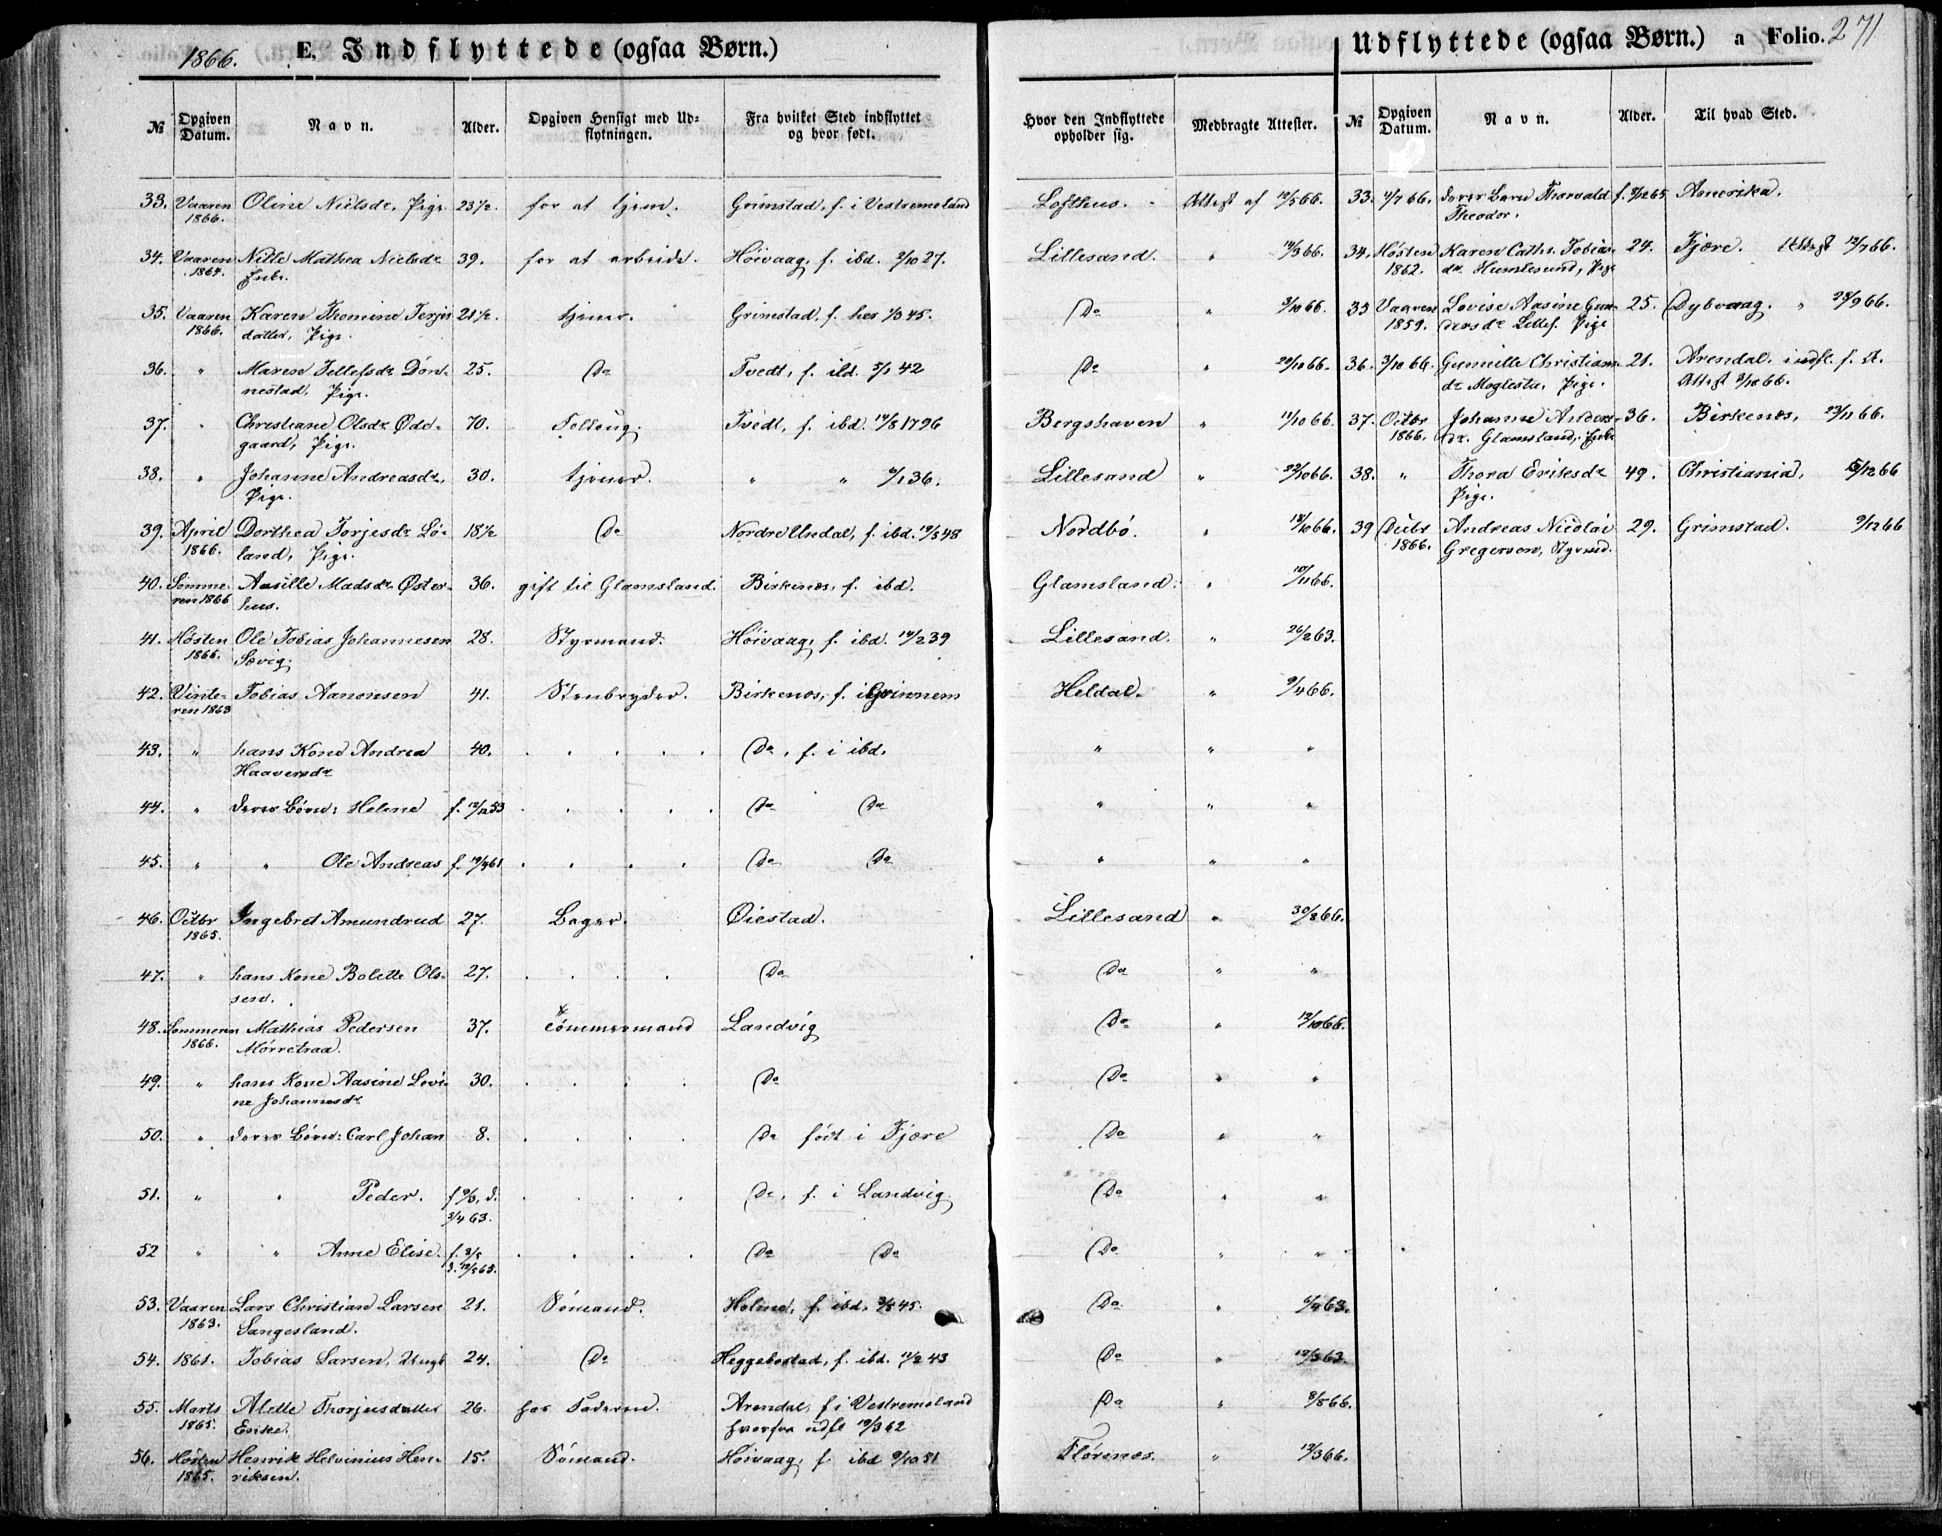 1866. E. Indflyttede (ogsaa Børn.)
№ Opgiven Datum. Navn. Alder. Opgiven Hensigt med Udflytningen. Fra hvilket Sted indflyttet og hvor født. Hvor den Indflyttede opholder sig. Medbragte Attester.
33. Vaaren 1866. Oline Nielsdr. Pige 23½ for at tjene. Grimstad, f. i Vestremoland Lofthus. Attest af 12/5 66.
34. Vaaren 1864. Nille Mathea Nielsdr. 39. for at arbeide. Høivaag, f. ibd. 2/10 27. Lillesand. " 14/3 66.
35. Vaaren 1866. Karen Thomine Terjesdatter, Pige. 21½ tjener. Grimstad, f. her 1/3 45. Do " 3/10 66.
36. " Maren Tellefsdr Dønnestad, Pige. 25. Do Tvedt, f. ibd. 5/1 42 Do " 20/10 66.
37. " Christiane Olsdr Ødegaard, Pige. 70. Tvedt, f. ibd. 14/8 1796 Bergshaven " 11/10 66.
38. " Johanne Andreasdr, Pige. 30. tjener. " " 6/1 36. Lillesand " 22/10 66.
39. April 1866. Dorthea Torjesdr Løland, Pige. 18½ Do Nordre Undal, f. ibd. 19/3 48 Nordbø. " 18/10 66.
40. Sommeren 1866 Aasille Madsdr Østerhus. 36. gift til Glamsland. Birkenes, f. ibd. Glamsland. " 10/11 66.
41. Høsten 1866. Ole Tobias Johannesen Sævig. 28. Styrmand. Høivaag, f. ibd. 14/2 39 Lillesand. " 26/2 63.
42. Vinteren 1863 Tobias Aanonsen 41. Stenbryder. Birkenes, f. i Heldal. " 9/4 66.
43. " hans Kone Andrea Haaversdr 40. . . . . Do, f. i ibd. " " "
44. " deres Børn: Helene f. 12/12 53 . . . . Do Do " " "
45. " " Ole Andreas f. 19/9 61 . . . . Do Do " " "
46. Octbr 1865. Ingebret Amundrud 27. Bager. Øiestad. Lillesand " 30/8 66.
47. " hans Kone Bolette Olsen. 27. . . . . Do Do " "
48. Sommeren 1866. Mathias Pedersen Mørretraa. 37. Tømmermand Landvig Do " 13/10 66.
49. " hans Kone Aasine Lovine Johannesdr 30. . . . . Do Do " "
50. " deres Børn: Carl Johan 8. . . . . Do født i Fjære Do " "
51. " " Peder. f 9/3, d. 3/4 63. . . . . Do, f. i Landvig. Do " "
52 " " Anne Elise. . . . . Do Do Do " "
53. Vaaren 1863. Lars Christian Larsen Sangesland. 21. Sømand. Holme, f. ibd. 3/8 45. Do " 6/9 63.
54. 1861. Tobias Larsen, Ungk 24. Do Heggebostad, f. ibd. 11/2 43 Do " 18/3 63.
55. Marts 1865. Alette Thorjeisdatter Eseke. 26. hos Faderen. Arendal, f i Vestremoland hvorfra udfl 19/3 62 Do " 8/8 66.
56. Høsten 1865. Henrik Helvinius Henriksen. 15. Sømand. Høivaag, f. ibd 9/10 51 Flørenes. " 12/3 66.
Udflyttede (ogsaa Børn.) a Folio. 271
№ Opgiven Datum. Navn. Alder. Til hvad Sted.
33. 4/7 66. deres Barn Thorvald Theodor. f. 9/12 65 Amerika.
34. Høsten 1862. Karen Cath. Tobiasdr. Humlesund, Pige 24. Fjære. Attest 12/7 66.
35 Vaaren 1859. Lovise Aasine Gundersdr Lillef. Pige 25. Dybvaag. " 28/9 66.
36. 3/10 66. Gunnille Christiansdr Moglestu, Pige. 21. Arendal, indfl. f. A. Attest 3/10 66.
37. Octbr 1866. Johanne Andersdr. Glamsland, 36. Birkenes, 23/11 66.
38. " Thora Eriksdr Pige. 49. Christiania, 5/12 66
39 Decbr 1866. Andreas Nicolai Gregersen, Styrmd. 29. Grimstad. 9/12 66